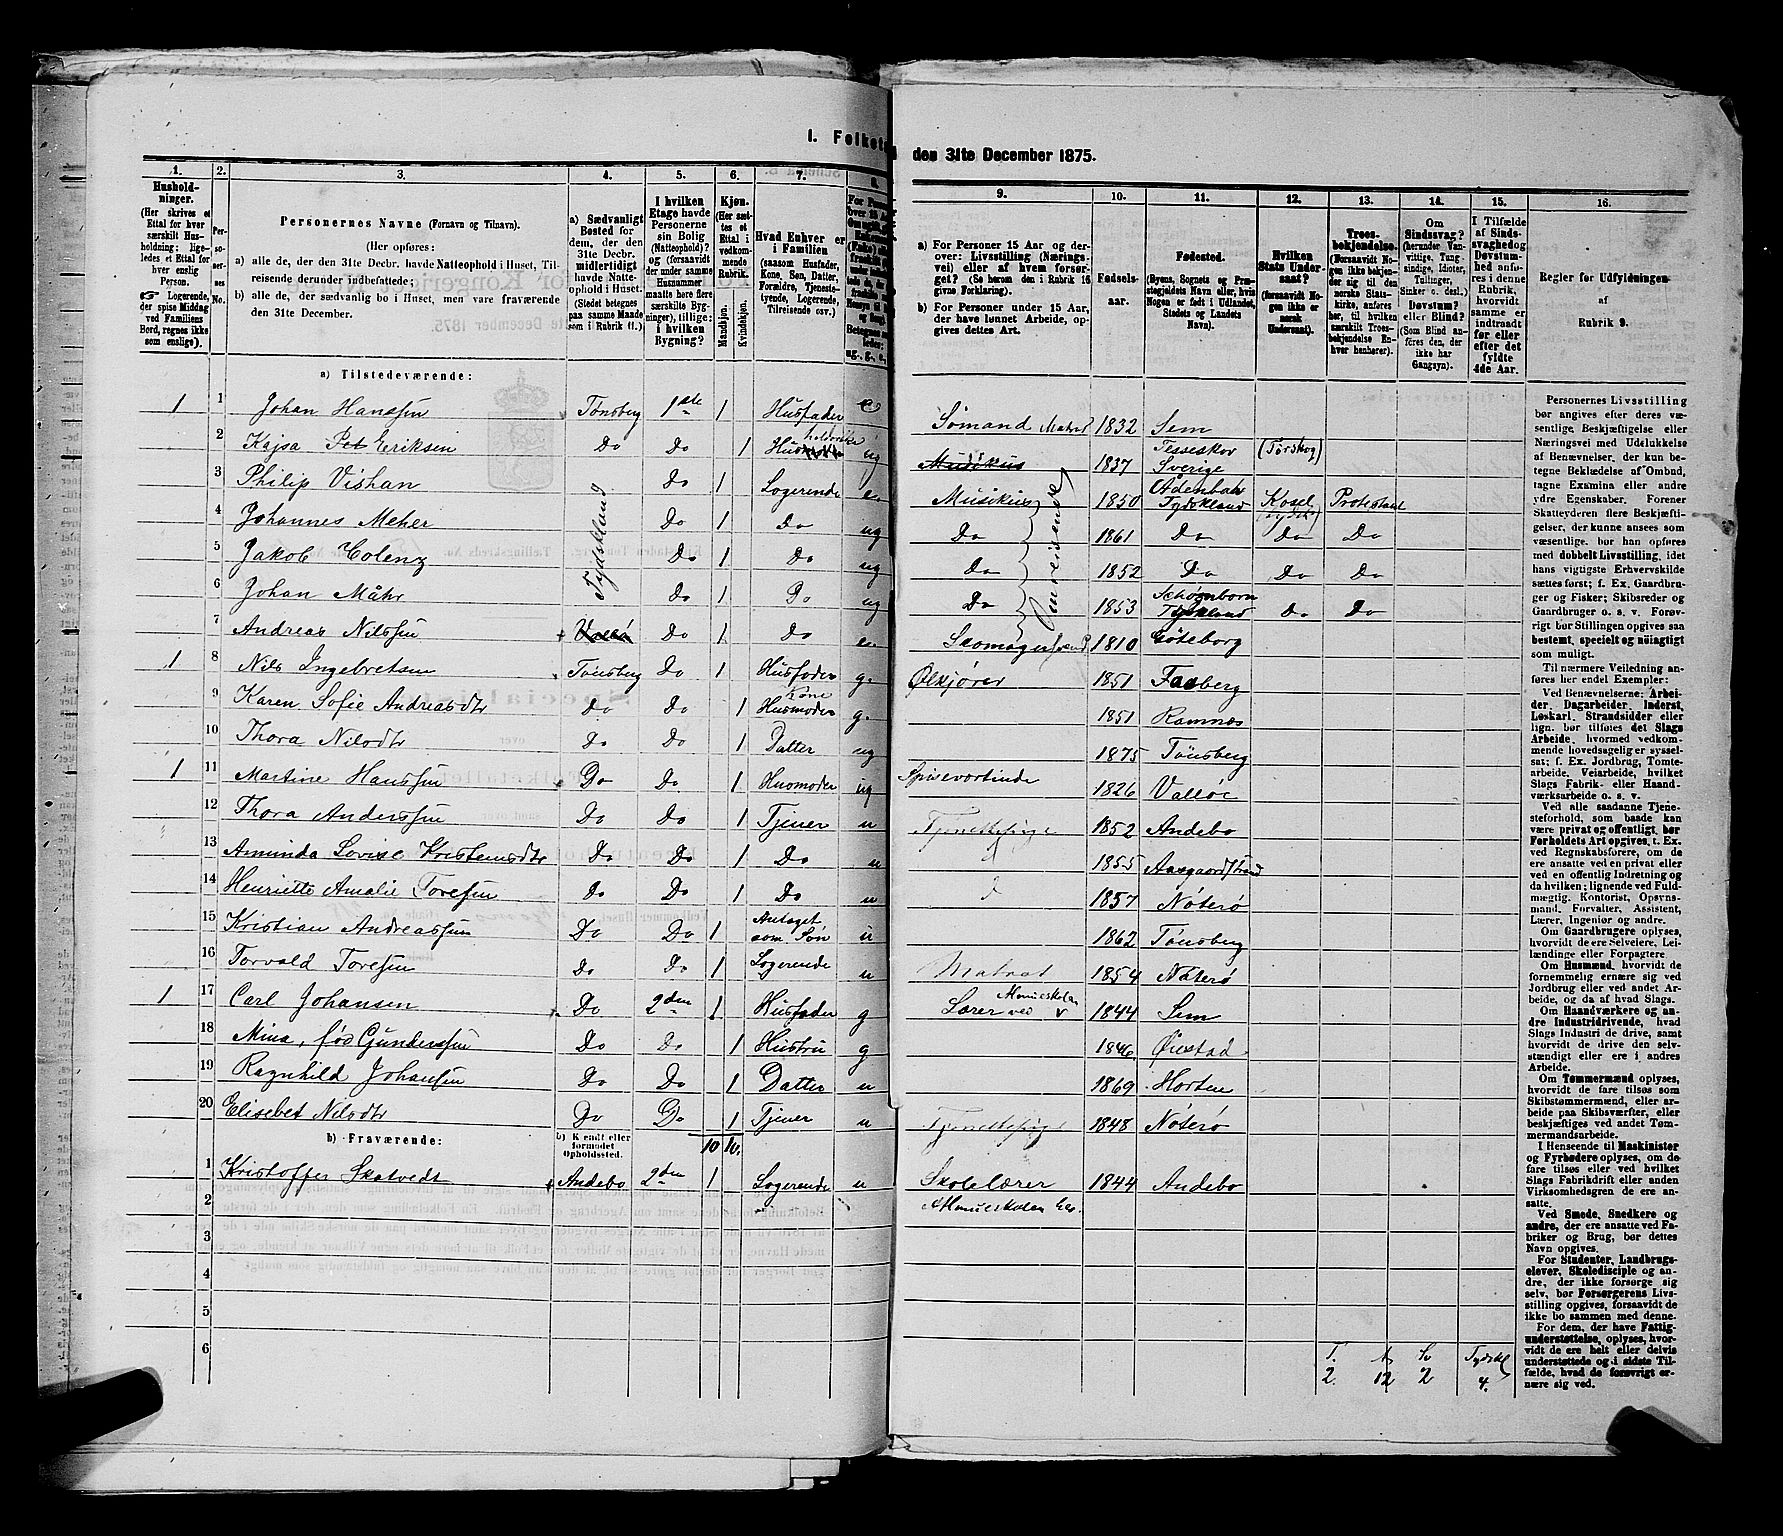 I. Folket
den 31te December 1875.
1.
Hushold-
ninger.
(Her skrives et
Ettal for hver
særskilt Hus-
holdning; lige-
ledes et Ettal for
hver enslig
Person.
Logerende,
der spise Middag
ved Familiens
Bord, regnes ikke
som enslige).
2.
Per-
so-
ner-
nes
No.
3.
Personernes Navne (Fornavn og Tilnavn).
(Her opføres:
a) alle de, der den 31te Decbr. havde Natteophold i Huset, Til-
reisende derunder indbefattede;
b) alle de, der sædvanlig bo i Huset, men vare fraværende
den 31te December.
4.
a) Sædvanligt
Bosted for
dem, der den
31te Decbr.
midlertidigt
havde Natte-
ophold i Huset.
(Stedet betegnes
paa samme Maade
som i Rubrik 11.).
5.
I hvilken
Etage havde
Personerne
sin Bolig
(Natteophold)?
og (forsaavidt
der under samme
Husnummer
maatte høre flere
særskilte Byg-
ninger), tillige:
i hvilken
Bygning?
6.
Kjøn.
(Her sæt-
tes et
Ettal i
vedkom-
mende
Rubrik.
Mandkjøn.
Kvindekjøn.
7.
Hvad Enhver er
i Familien
(saasom Husfader,
Kone, Søn, Datter,
Forældre, Tjeneste-
tyende, Logerende,
Tilreisende osv.)
8.
9.
a) For Personer 15 Aar og der-
over: Livsstilling (Nærings-
vei) eller af hvem forsør-
get? (Se herom den i Rubrik 16
givne Forklaring).
b) For Personer under 15 Aar,
der have lønnet Arbeide, op-
gives dettes Art.
10.
Fødsels-
aar.
11.
Fødested.
(Byens, Sognets og Præ-
stegjeldets Navn eller, hvis
Nogen er født i Udlandet,
Stedets og Landets
Navn).
12.
Hvilken
Stats Under-
saat?
(forsaavidt No-
gen ikke er
norsk
Undersaat).
13.
Troes-
bekjendelse.
(Forsaavidt No-
gen ikke beken-
der sig til den
norske Stats-
kirke, anføres
her, til hvilken
særskilt Troes-
bekjendelse En-
hver henhører).
14.
Om
Sindssvag?
(herunder Van-
vittige, Tung-
sindige, Idioter,
Tullinger,
Sinker o. desl.)
Døvstum?
eller Blind?
(Som Blind an-
føres den, der
ikke har
Gangsyn).
15.
I Tilfælde
af Sinds-
svaghed og
Døvstum-
hed anfø-
res i denne
Rubrik,
hvorvidt
samme er
indtraadt
før eller
efter det
fyldte
4de Aar.
16.
Regler for Udfyldningen
af
Rubrik 9.
a) Tilstedeværende:
1 1 Johan Hanssen Tønsberg 1ste 1 Husfader e Sømand Matros 1832 Sem
2 Kajsa Pet Eriksen Do Do 1 ug Musikus 1837 Tesseskov Sverige (Torskog)
3 Philip Vishan Tydskland Do 1 Logerende e. Musikus 1850 Adenbah Tydskland Kosel (tydsk) Protestant
4 Johannes Meher Do 1 Do ug Do 1861 Do Do Do
5 Jakob Colenz Do 1 Do ug Do Omreisende 1852 Do Do Do
6 Johan Måhr Do 1 Do ug Do 1853 Schønborn Tydskland Do Do
7 Andreas Nilssen Vallø Do 1 Do e. Skomager 1810 Göteborg
1 8 Nils Ingebretsen Tønsberg Do 1 Husfader g. Ølkjører 1851 Faaberg
9 Karen Sofie Andreasdtr Do Do 1 Kone Husmoder g. 1851 Ramnæs
10 Thora Nilsdtr Do Do 1 Datter ug 1875 Tønsberg
1 11 Martine Hanssen Do Do 1 Husmoder ug Spisevertinde 1826 Valløe
12 Thora Anderssen Do Do 1 Tjener u Tjenestepige 1852 Andebo
13 Aminda Lovise Kristensdtr Do Do 1 Do u d 1855 Aasgaardstrand
14 Henriette Amalie Toresen Do Do 1 Do u d 1857 Nøterø
15 Kristian Andreassen Do Do 1 Antaget som Søn u 1862 Tønsberg
16 Torvald Toresen Do Do 1 Logerende u Matros 1854 Nøterø
1 17 Carl Johansen Do 2den 1 Husfader g Lærer ved Almueskolen 1844 Sem
18 Mina, fød Gunderssen Do Do 1 Hustru g 1846 Øiestad
19 Ragnhild Johansen Do Do 1 Datter u 1869 Horten
20 Elisebet Nilsdtr Do Do 1 Tjener u Tjenestepige 1848 Nøterø
b) Fraværende:
b) Kjendt eller
formodet
Opholdssted.
10 10.
1 Kristoffer Skatvedt Andebo 2den 1 Logerende u Skolelærer 1844 Andebo
2 Almueskolen
3
4
5
6
T. A Sv Tydskl
2. 12 2 4.
Personernes Livsstilling
bør angives efter deres væ-
sentlige Beskjæftigelse eller
Næringsvei med Udelukkelse
af Benævnelser, der kun be-
tegne Beklædelse af Ombud,
tagne Examina eller andre
ydre Egenskaber. Forener
Skatteyderen flere Beskjæfti-
gelser, der kunne ansees som
væsentlige, bør han opføres
med dobbelt Livsstilling, idet
hans vigtigste Erhvervskilde
sættes først; f. Ex. Gaardbru-
ger og Fisker; Skibsreder og
Gaardbruger o. s. v. Forøv-
rigt bør Stillingen opgives saa
bestemt, specielt og nøiagtigt
som muligt.
Til nærmere Veiledning an-
føres her endel Exempler:
Ved Benævnelserne: Arbei-
der, Dagarbeider, Inderst,
Løskarl, Strandsidder eller
lign. bør tilføies det Slags
Arbeide, hvormed vedkom-
mende hovedsagelig er syssel-
sat; f. Ex. Jordbrug, Tomte-
arbeide, Veiarbeide, hvilket
Slags Fabrik- eller Haand-
værksarbeide o. s. v.
Ved alle saadanne Tjene-
steforhold, som baade kan
være privat og offentligt, bør
Forholdets Art opgives, t. Ex.
ved Regnskabsførere, om de
ere ansatte ved en privat eller
ved en offentlig Indretning og
da hvilken; lignende ved Fuld-
mægtig, Kontorist, Opsyns-
mand, Forvalter, Assistent,
Lærer, Ingeniør og andre.
Om Gaardbrugere oplyses,
hvorvidt de ere Selveiere, Lei-
lændinge eller Forpagtere
Om Husmænd, hvorvidt de
fornemmelig ernære sig ved
Jordbrug eller ved andet Ar-
beide, og da af hvad Slags.
Om Haandværkere og an-
dre Industridrivende, hvad
Slags Industri de drive, samt
hvorvidt de drive den selv-
stændigt eller ere i andres
Arbeide.
Om Tømmermænd oplyses,
hvorvidt de fare tilsøs som
Skibstømmermænd, eller ar-
beide paa Skibsværfter, eller
beskjæftiges ved andet Tøm-
mermandsarbeide.
I Henseende til Maskinister
og Fyrbødere oplyses, om de
fare tilsøs eller ved hvilket
Slags Fabrikdrift eller anden
Virksomhedsgren de ere an-
satte.
Ved Smede, Snedkere og
andre, der ere ansatte ved Fa-
briker og Brug, bør dettes
Navn opgives.
For Studenter, Landbrugs-
elever, Skoledisciple og an-
dre, der ikke forsørge sig
selv, bør Forsørgerens Livs-
stilling opgives, forsaavidt de
ikke bo sammen med denne.
For dem, der have Fattig-
understøttelse, oplyses, hvor-
vidt de ere helt eller delvis
understøttede og i sidste Til-
fælde, hvad de forøvrigt er-
nære sig ved.